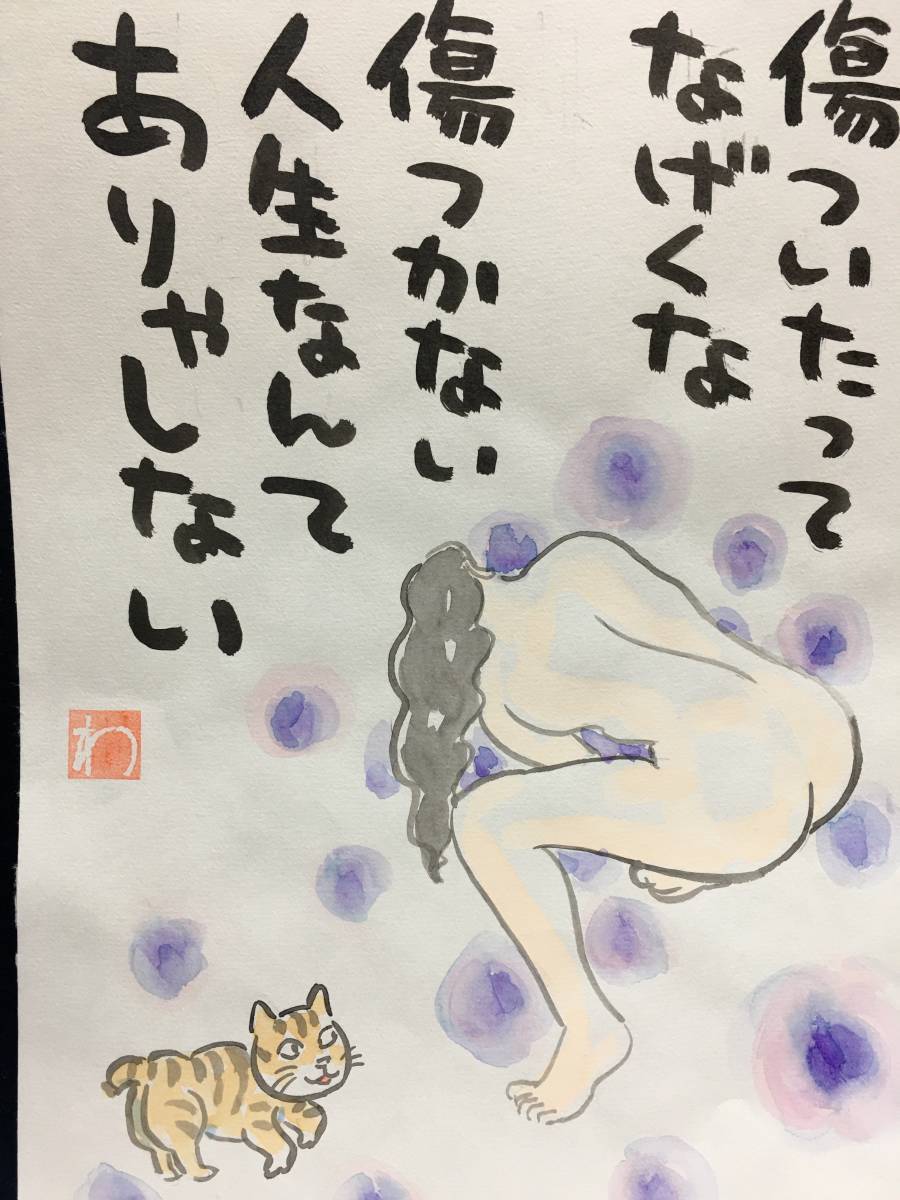 傷ついたって
なげくな
傷つかない
人生なんて
ありゃしない
わ